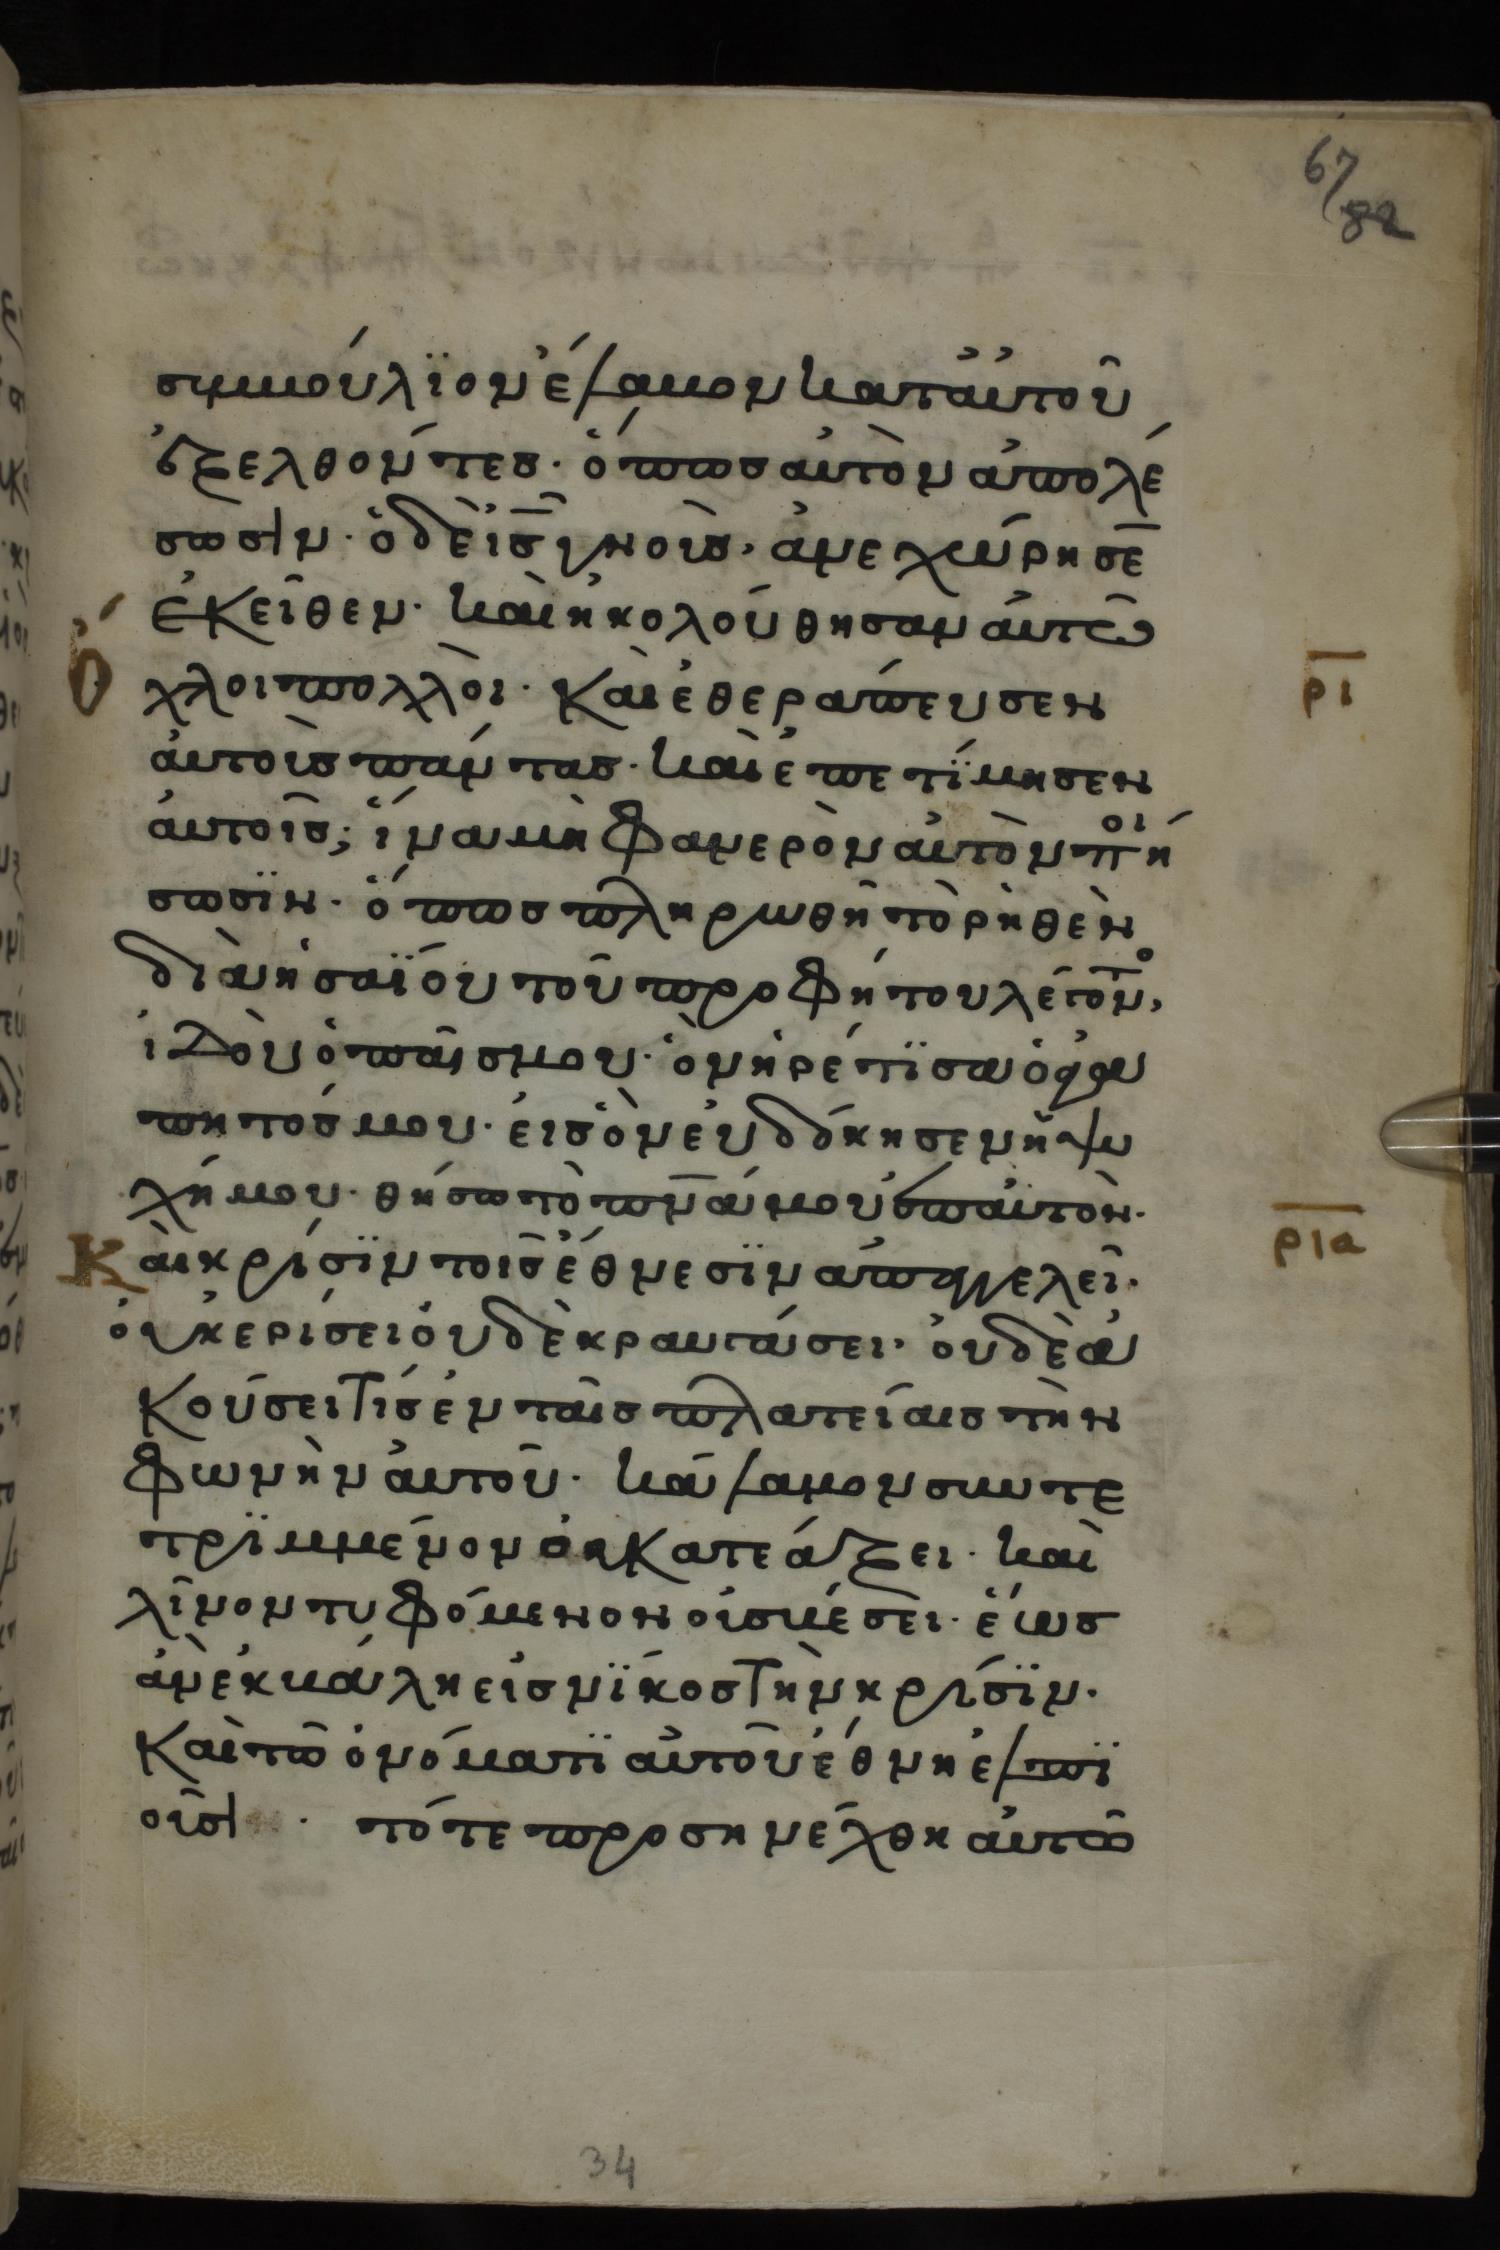 67/82
συμβούλϊον ἔλαβον κατ' ἀυτοῦ
ἐξελθόντες· ὅπως ἀυτὸν ἀπολέ
σωσιν· ὁ δὲ ἰς γνοὺς, ἀνεχώρησε
ἐκεῖθεν· καὶ ἠκολούθησαν ἀυτῶ
Ὄ
χλοι πολλοὶ· καὶ ἐθεράπευσεν
ρι
ἀυτοὺς πάντας· καὶ ἐπετίμησεν
ἀυτοῖς; ἵνα μὴ φανερὸν ἀυτὸν ποιή
σωσϊν· ὅπως πληρωθῆ τὸ ρηθὲν
διὰ ἡσαΐου τοῦ προφήτου λέγοντος,
ἰδοὺ ὁ παῖς μου· ὃν ἡρέτϊσα ὁ ἀγα
πητός μου· εἰς ὃν ἐυδόκησεν ἡ ψυ
χή μου· θήσω τὸ πνα μου ἐπ' ἀυτὸν·
Κ
αὶ κρίσϊν τοῖς ἔθνεσϊν ἀπαγγελεῖ·
ρια
ὀυκ ἐρίσει ὀυδὲ κραυγάσει· ὀυδὲ ἀ
κούσει τίς ἐν ταῖς πλατείαις τὴν
φωνὴν ἀυτοῦ· κάλαμον συντε
τρϊμμένον ὀυ κατεάξει· καὶ
λῖνον τυφόμενον οὐ σβέσει· ἕως
ἀν ἐκβάλη εἰς νϊκος τὴν κρίσϊν·
Καὶ τῶ ὀνόματϊ ἀυτοῦ ἔθνη ἐλπϊ
οῦσι · τότε προσηνέχθη ἀυτῶ
34